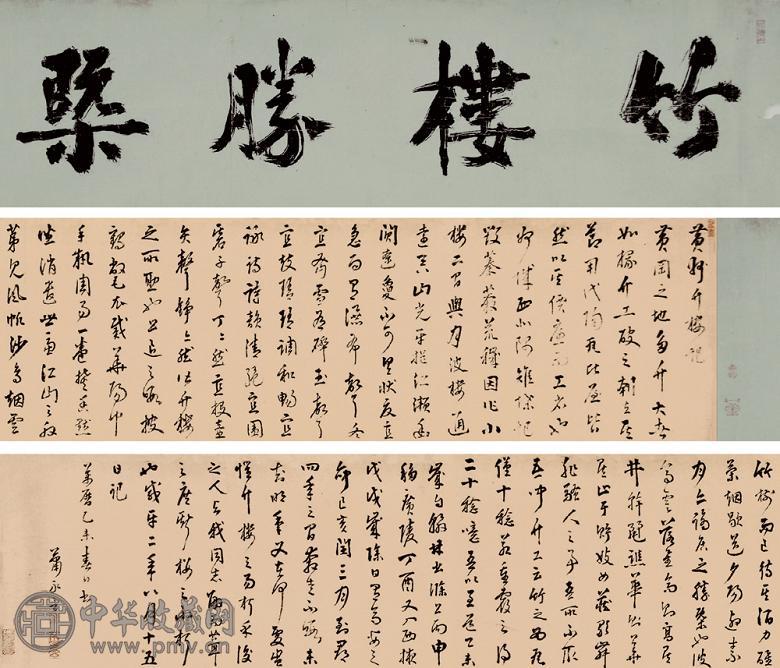 竹樓勝槩
黃州竹樓記
黃岡之地多竹大者
如椽竹工破之刳去其
節用代陶瓦比屋皆
然以其價廉而工省也
子城西北隅雉堞圮
毀蓁莽荒穢因作小
樓二間與月波樓通
遠吞山光平挹江瀨幽
闃遼夐不可具狀夏宜
急雨有瀑布聲冬
宜密雪有碎玉聲
宜鼓琴琴調和暢宜
詠詩詩韻清絕宜圍
棋子聲丁丁然宜投壺
矢聲錚錚然皆竹樓
之所助也公退之暇披
鶴氅衣戴華陽巾
手執周易一卷焚香默
坐消遣世慮江山之外
第見風帆沙鳥煙雲
竹樹而已待其酒力醒
茶煙歇送夕陽迎素
月亦謫居之勝槩也彼
齊雲落星高則高矣
井幹麗譙華則華
矣止于貯妓女藏歌舞
非騷人之事吾所不取
吾聞竹工云竹之為瓦
僅十稔若重覆之得
二十稔噫吾以至道乙未
歲自翰林出滁上丙申
移廣陵丁酉又入西掖
戊戌歲除日有齊安之
命己亥閏三月到郡
四年之間奔走不暇未
知明年又在何處豈
懼竹樓之易朽乎後
之人與我同志嗣而葺
之庶斯樓之不朽
也咸平二年八月十五
日記
萬曆乙未春日書
中华收藏网
www.pmv.cn